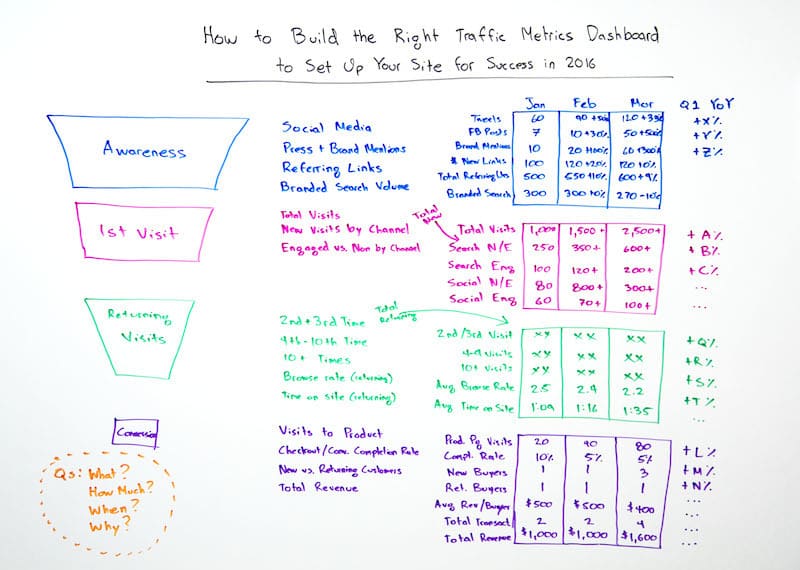 How to Build the Right Traffic Metrics Dashboard
to Set Up Your Site for Success in 2016
Jan Feb Mar Q1 YoY
Awareness
Social Media
Press + Brand Mentions
Referring Links
Branded Search Volume
Tweets 60 90 +50% 120 +33% +X%
FB Posts 7 10 +30% 50 +500% +Y%
Brand Mentions 10 20 +100% 60 +300% +Z%
# New Links 100 120 +20% 120 +0%
Total Referring URLs 500 550 +10% 600 +9%
Branded Search 300 300 +0% 270 -10%
1st Visit
Total Visits
New Visits by Channel
Engaged vs. Non by Channel
Total New
Total Visits 1,000 1,500+ 2,500+ +A%
Search N/E 250 350+ 600+ +B%
Search Eng 100 120+ 200+ +C%
Social N/E 80 800+ 300+ ...
Social Eng 60 70+ 100+ ...
Returning
Visits
2nd + 3rd Time
4th - 10th Time
10+ Times
Browse rate (returning)
Time on site (returning)
Total Returning
2nd/3rd Visit xx xx xx +Q%
4-9 Visits xx xx xx +R%
10+ Visits xx xx xx +S%
Avg Browse Rate 2.5 2.4 2.2 +T%
Avg Time on Site 1:09 1:16 1:35 ...
Conversion
Visits to Product
Checkout/Conv. Completion Rate
New vs. Returning Customers
Total Revenue
Prod. Pg Visits 20 40 80 +L%
Compl. Rate 10% 5% 5% +M%
New Buyers 1 1 3 +N%
Ret. Buyers 1 1 1 ...
Avg Rev/Buyer $500 $500 $400 ...
Total Transact. 2 2 4 ...
Total Revenue $1,000 $1,000 $1,600 ...
Qs: What?
How Much?
When?
Why?